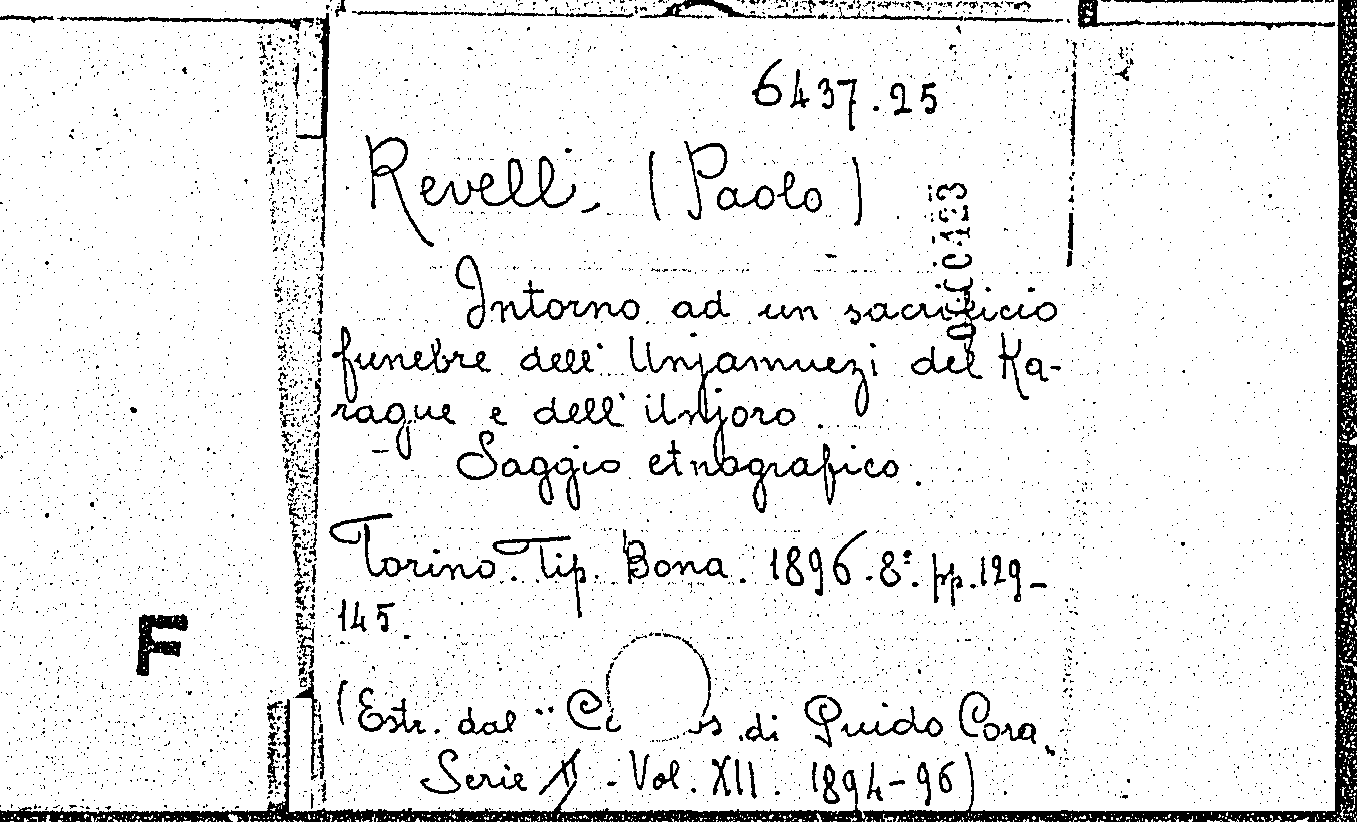 6437.25
Revelli, (Paolo)
Intorno ad un sacrificio
funebre dell' Unjamuezi del Ka-
rague e dell' Unjoro.
Saggio etnografico.
Torino. Tip. Bona. 1896. 8°. pp. 129-
145.
F
(Estr. dal " di Guido Cora,
Serie - Vol. XII. 1894-96)